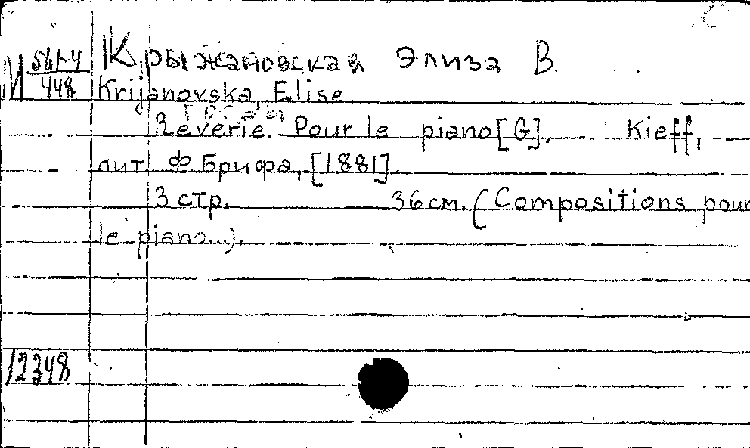 Крыжановская Элиза В.
М 561-4
448
Krijanovska, Elise
Rêverie. Pour le piano [G]. Kieff,
лит. Ф. Брифа, [1881].
3 стр. 36 см. (Compositions pour
le piano...).
12348